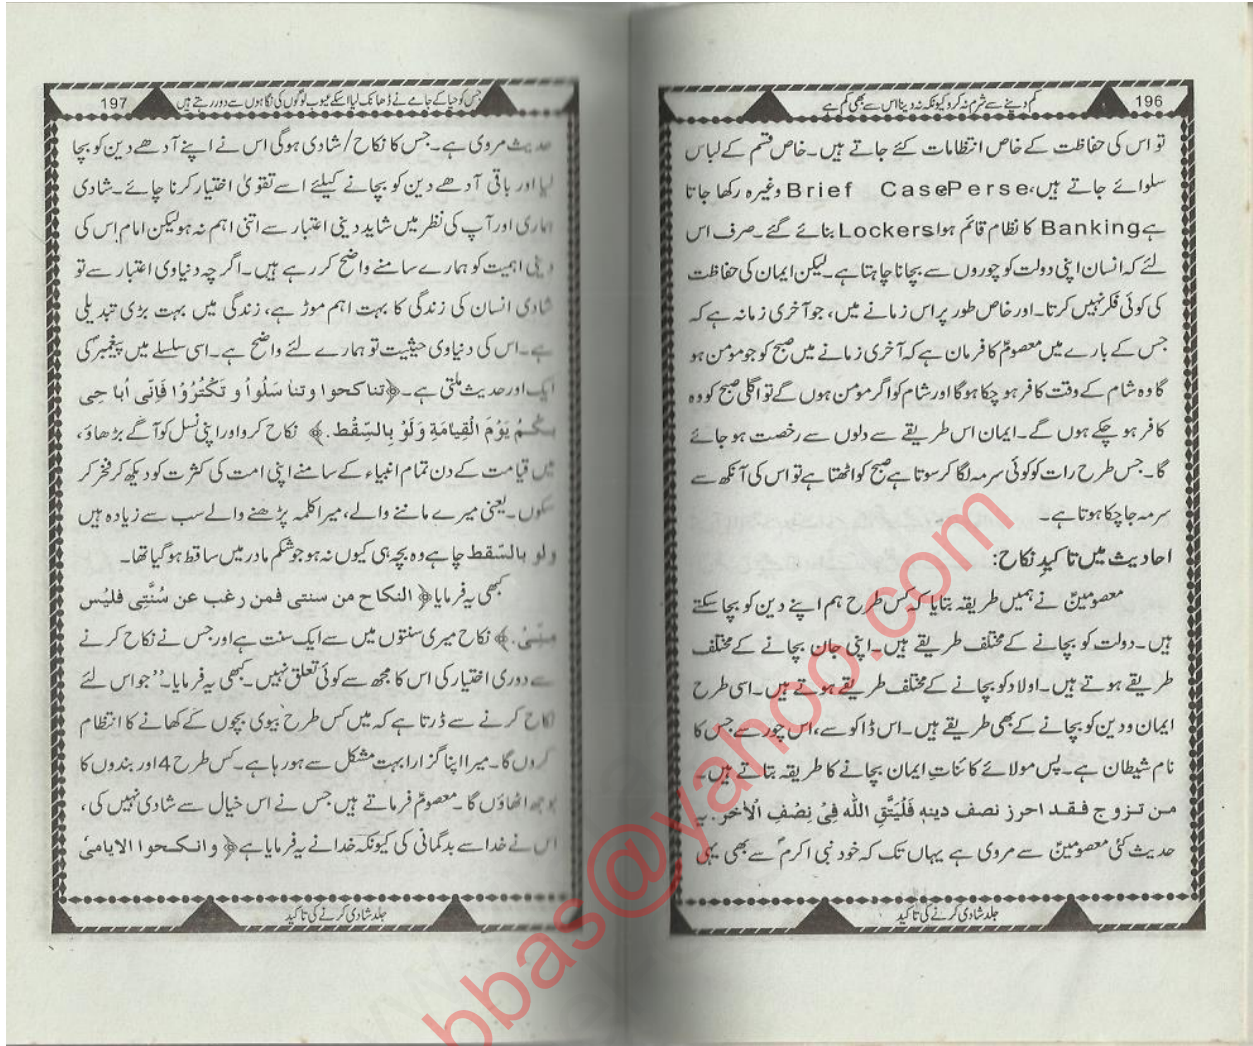 196
کم دینے سے شرم نہ کرو کیونکہ نہ دینا اس سے بھی کم ہے
تو اس کی حفاظت کے خاص انتظامات کئے جاتے ہیں۔ خاص قسم کے لباس
سلوائے جاتے ہیں، Brief Case, Perse وغیرہ رکھا جاتا
ہے Banking کا نظام قائم ہوا Lockers بنائے گئے۔ صرف اس
لئے کہ انسان اپنی دولت کو چوروں سے بچانا چاہتا ہے۔ لیکن ایمان کی حفاظت
کی کوئی فکر نہیں کرتا۔ اور خاص طور پر اس زمانے میں، جو آخری زمانہ ہے کہ
جس کے بارے میں معصومؑ کا فرمان ہے کہ آخری زمانے میں صبح کو جو مؤمن ہو
گا وہ شام کے وقت کافر ہو چکا ہوگا اور شام کو اگر مؤمن ہوں گے تو اگلی صبح کو وہ
کافر ہو چکے ہوں گے۔ ایمان اس طریقے سے دلوں سے رخصت ہو جائے
گا۔ جس طرح رات کو کوئی سرمہ لگا کر سوتا ہے صبح کو اٹھتا ہے تو اس کی آنکھ سے
سرمہ جا چکا ہوتا ہے۔
احادیث میں تاکیدِ نکاح:
معصومینؑ نے ہمیں طریقہ بتایا کہ کس طرح ہم اپنے دین کو بچا سکتے
ہیں۔ دولت کو بچانے کے مختلف طریقے ہیں۔ اپنی جان بچانے کے مختلف
طریقے ہوتے ہیں۔ اولاد کو بچانے کے مختلف طریقے ہوتے ہیں۔ اسی طرح
ایمان و دین کو بچانے کے بھی طریقے ہیں۔ اس ڈاکو سے، اس چور سے جس کا
نام شیطان ہے۔ پس مولائے کائنات ایمان بچانے کا طریقہ بتاتے ہیں۔
من تزوج فقد احرز نصف دینہ فَلْیَتَّقِ اللّٰہ فِیْ نِصْفِ الْاٰخر. یہ
حدیث کئی معصومینؑ سے مروی ہے یہاں تک کہ خود نبی اکرمؐ سے بھی یہی
جلد شادی کرنے کی تاکید
197
جس کو حیا کے جامے نے ڈھانک لیا اسکے عیوب لوگوں کی نگاہوں سے دور رہتے ہیں
حدیث مروی ہے۔ جس کا نکاح/شادی ہوگی اس نے اپنے آدھے دین کو بچا
لیا اور باقی آدھے دین کو بچانے کیلئے اسے تقویٰ اختیار کرنا چائے۔ شادی
ہماری اور آپ کی نظر میں شاید دینی اعتبار سے اتنی اہم نہ ہو لیکن امام اس کی
دینی اہمیت کو ہمارے سامنے واضح کر رہے ہیں۔ اگرچہ دنیاوی اعتبار سے تو
شادی انسان کی زندگی کا بہت اہم موڑ ہے، زندگی میں بہت بڑی تبدیلی
ہے۔ اس کی دنیاوی حیثیت تو ہمارے لئے واضح ہے۔ اسی سلسلے میں پیغمبرؐ کی
ایک اور حدیث ملتی ہے۔ ﴿تناکحوا وتنا سَلُواْ و تَکْثُرُوْا فَاِنّی اُبا حِی
بِکُمُ یَوْمَ الْقِیامَةِ وَلَوْ بِالسِّقْط.﴾ نکاح کرو اور اپنی نسل کو آگے بڑھاؤ،
میں قیامت کے دن تمام انبیاء کے سامنے اپنی امت کی کثرت کو دیکھ کر فخر کر
سکوں۔ یعنی میرے ماننے والے، میرا کلمہ پڑھنے والے سب سے زیادہ ہیں
ولو بالسّقط چاہے وہ بچہ ہی کیوں نہ ہو جو شکم مادر میں ساقط ہو گیا تھا۔
کبھی یہ فرمایا ﴿ النکاح من سنتی فمن رغب عن سُنَّتِی فلیْس
مِنّیْ.﴾ نکاح میری سنتوں میں سے ایک سنت ہے اور جس نے نکاح کرنے
سے دوری اختیار کی اس کا مجھ سے کوئی تعلق نہیں۔ کبھی یہ فرمایا۔ ”جو اس لئے
نکاح کرنے سے ڈرتا ہے کہ میں کس طرح بیوی بچوں کے کھانے کا انتظام
کروں گا۔ میرا اپنا گزارا بہت مشکل سے ہو رہا ہے۔ کس طرح 4 اور بندوں کا
بوجھ اٹھاؤں گا۔ معصومؑ فرماتے ہیں جس نے اس خیال سے شادی نہیں کی،
اس نے خدا سے بدگمانی کی کیونکہ خدا نے یہ فرمایا ہے ﴿ وانکحوا الایامیٰ
جلد شادی کرنے کی تاکید
bbas@yahoo.com